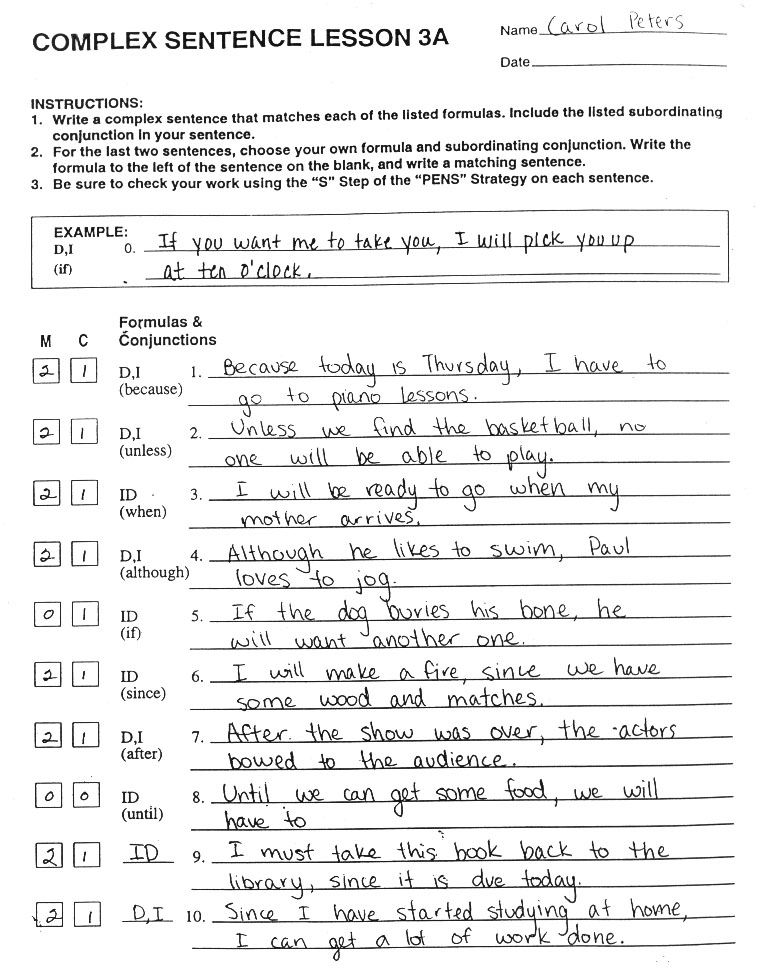 COMPLEX SENTENCE LESSON 3A
Name Carol Peters
Date
INSTRUCTIONS:
1. Write a complex sentence that matches each of the listed formulas. Include the listed subordinating
conjunction in your sentence.
2. For the last two sentences, choose your own formula and subordinating conjunction. Write the
formula to the left of the sentence on the blank, and write a matching sentence.
3. Be sure to check your work using the “S” Step of the “PENS” Strategy on each sentence.
EXAMPLE:
D,I 0. If you want me to take you, I will pick you up
(if) at ten o'clock.
Formulas &
M C Conjunctions
2 1 D,I 1. Because today is Thursday, I have to
(because) go to piano lessons.
2 1 D,I 2. Unless we find the basketball, no
(unless) one will be able to play.
2 1 ID 3. I will be ready to go when my
(when) mother arrives.
2 1 D,I 4. Although he likes to swim, Paul
(although) loves to jog.
0 1 ID 5. If the dog buries his bone, he
(if) will want another one.
2 1 ID 6. I will make a fire, since we have
(since) some wood and matches.
2 1 D,I 7. After the show was over, the actors
(after) bowed to the audience.
0 0 ID 8. Until we can get some food, we will
(until) have to
2 1 ID 9. I must take this book back to the
library, since it is due today.
2 1 D,I 10. Since I have started studying at home,
I can get a lot of work done.